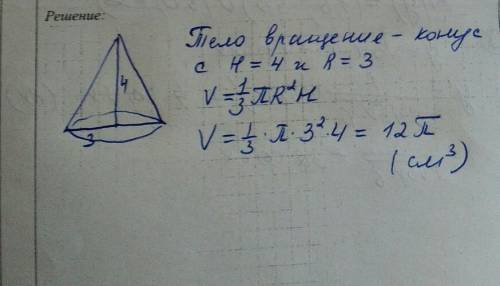 Решение:
Тело вращение - конус
с H = 4 и R = 3
V = 1/3 πR²H
4
3
V = 1/3 · π · 3² · 4 = 12π
(см³)